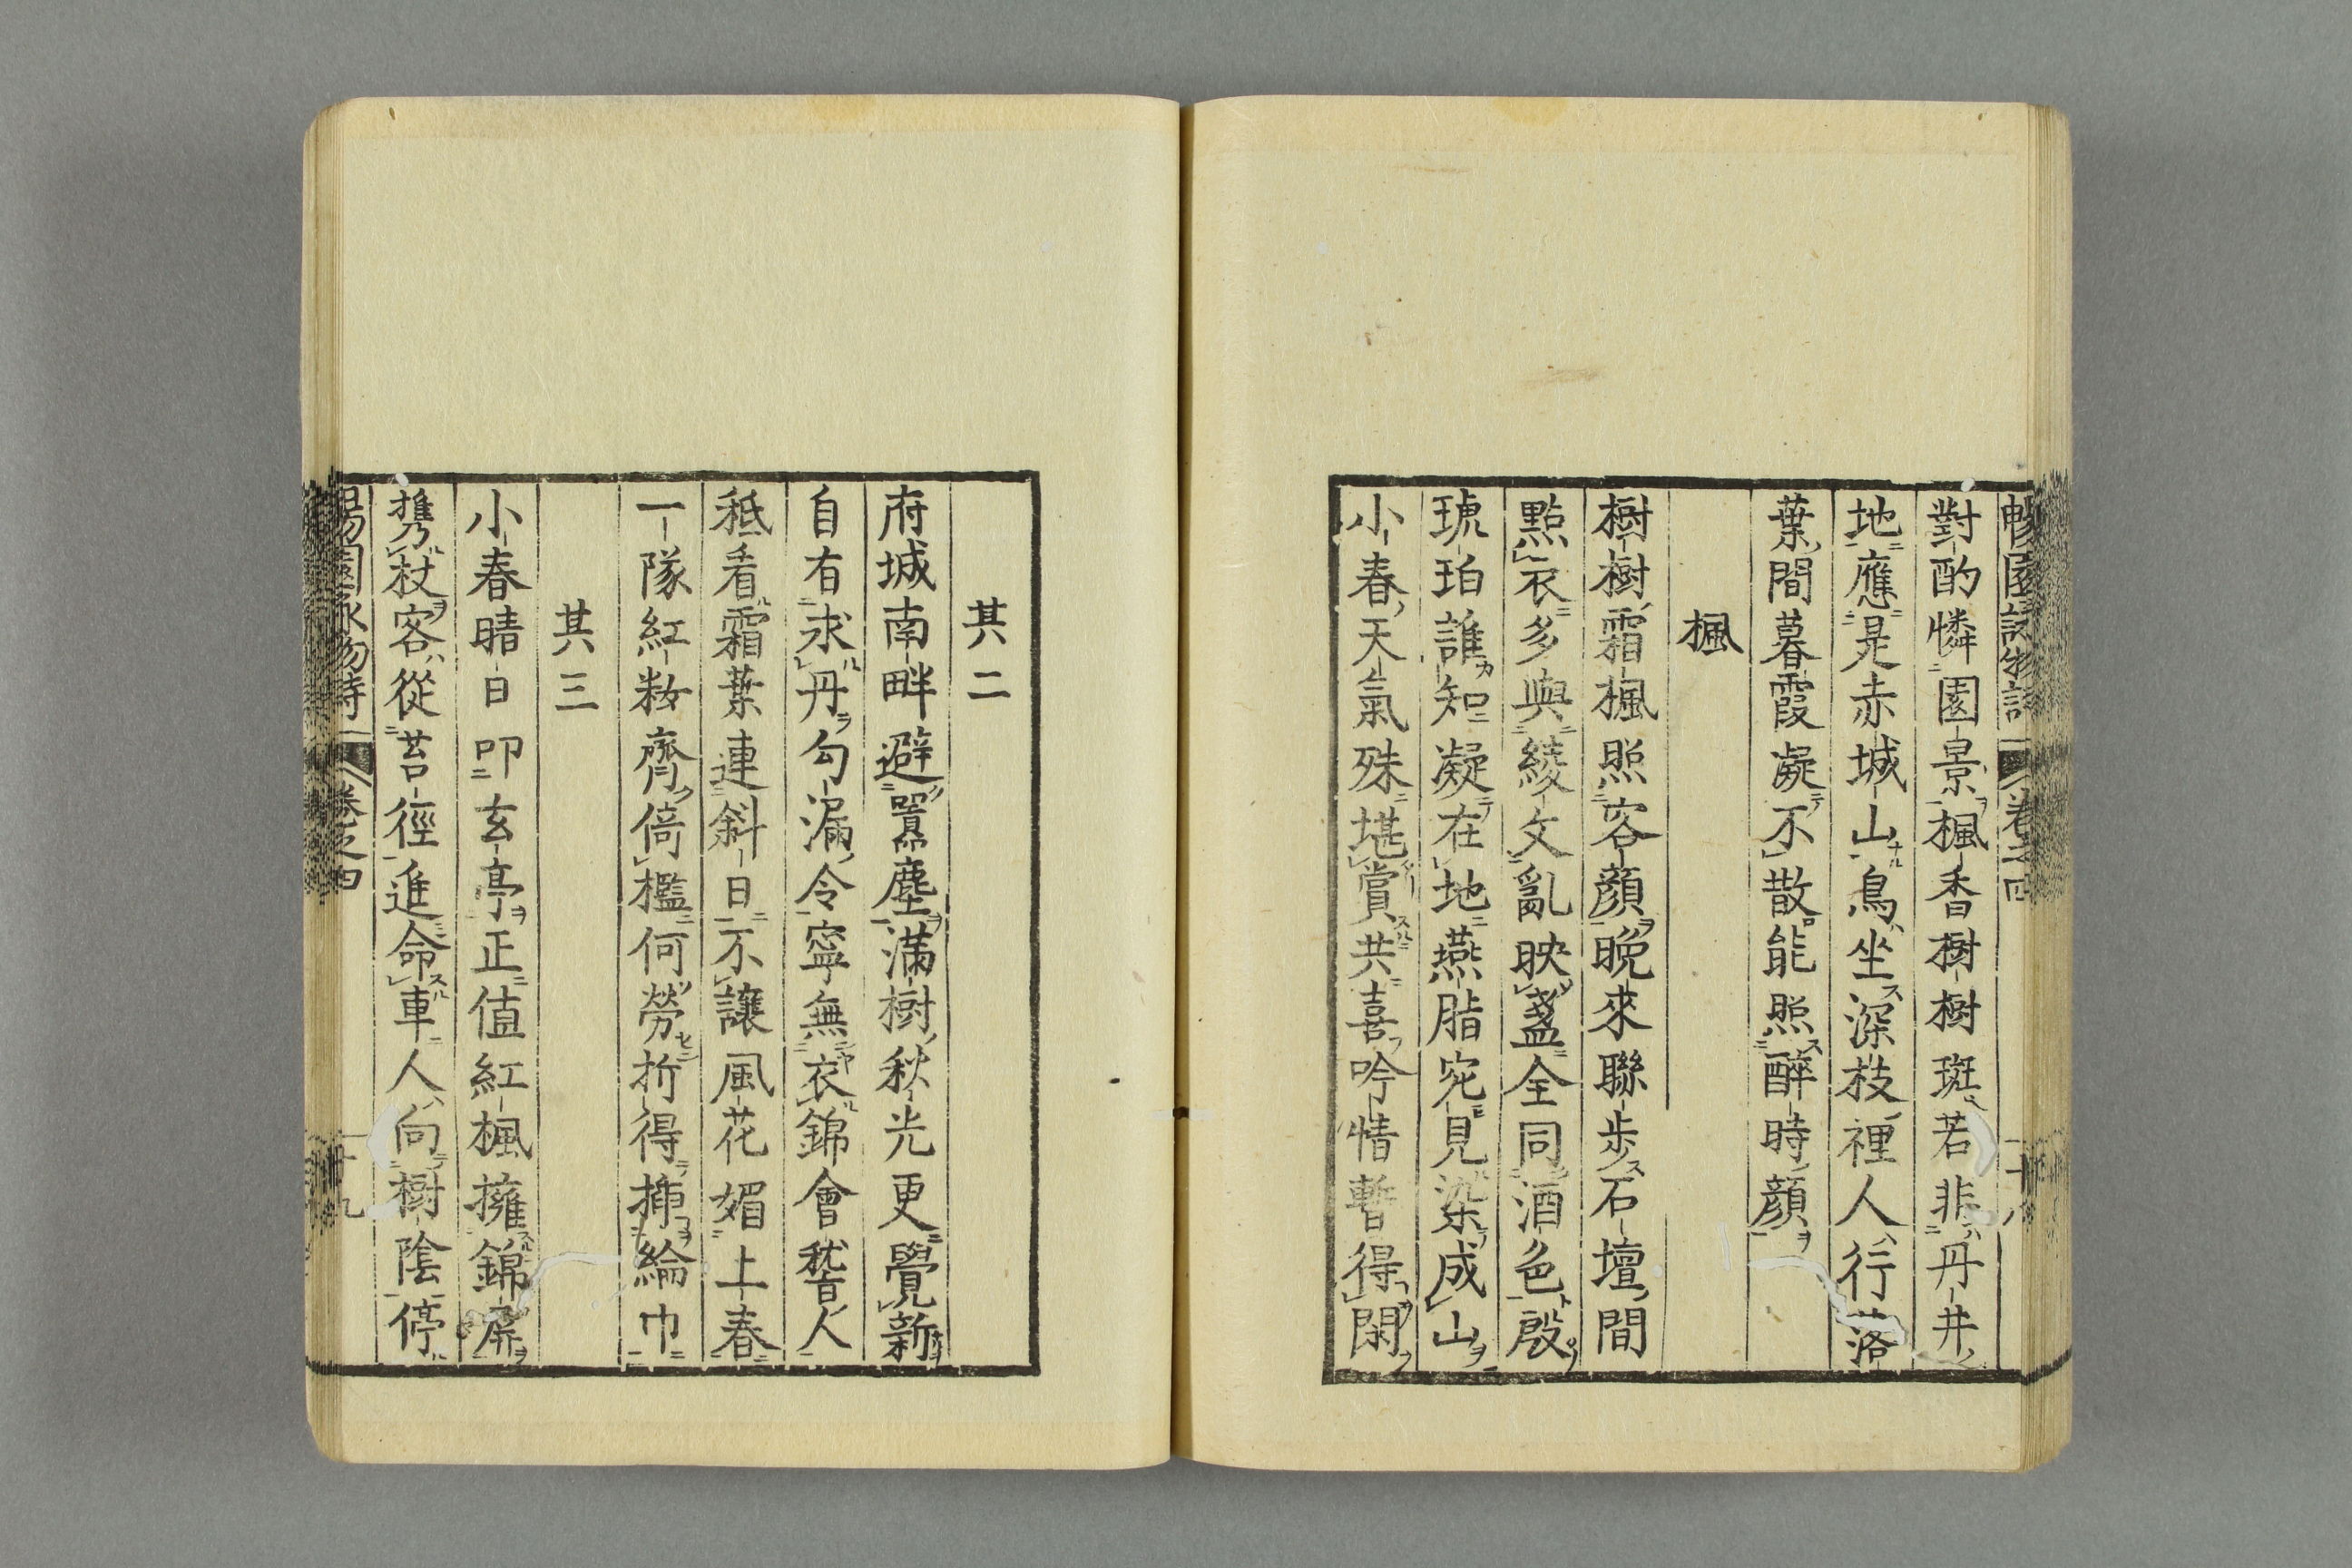 暢園詠物詩 卷之四 十八
對酌憐園景楓香樹樹斑若非丹井
地應是赤城山鳥坐深枝裡人行落
葉間暮霞凝不散能照醉時顔
楓
樹樹霜楓照客顔晩來聯步石壇間
點衣多與綾文亂映盞全同酒色殷
琥珀誰知凝在地燕脂宛見染成山
小春天氣殊堪賞共喜吟情暫得閑
其二
府城南畔避囂塵滿樹秋光更覺新
自有求丹勾漏令寧無衣錦會稽人
秪看霜葉連斜日不讓風花媚上春
一隊紅粧齊倚檻何勞折得揷綸巾
其三
小春晴日叩玄亭正値紅楓擁錦屏
携杖客從苔徑進命車人向樹陰停
暢園詠物詩 卷之四 十九